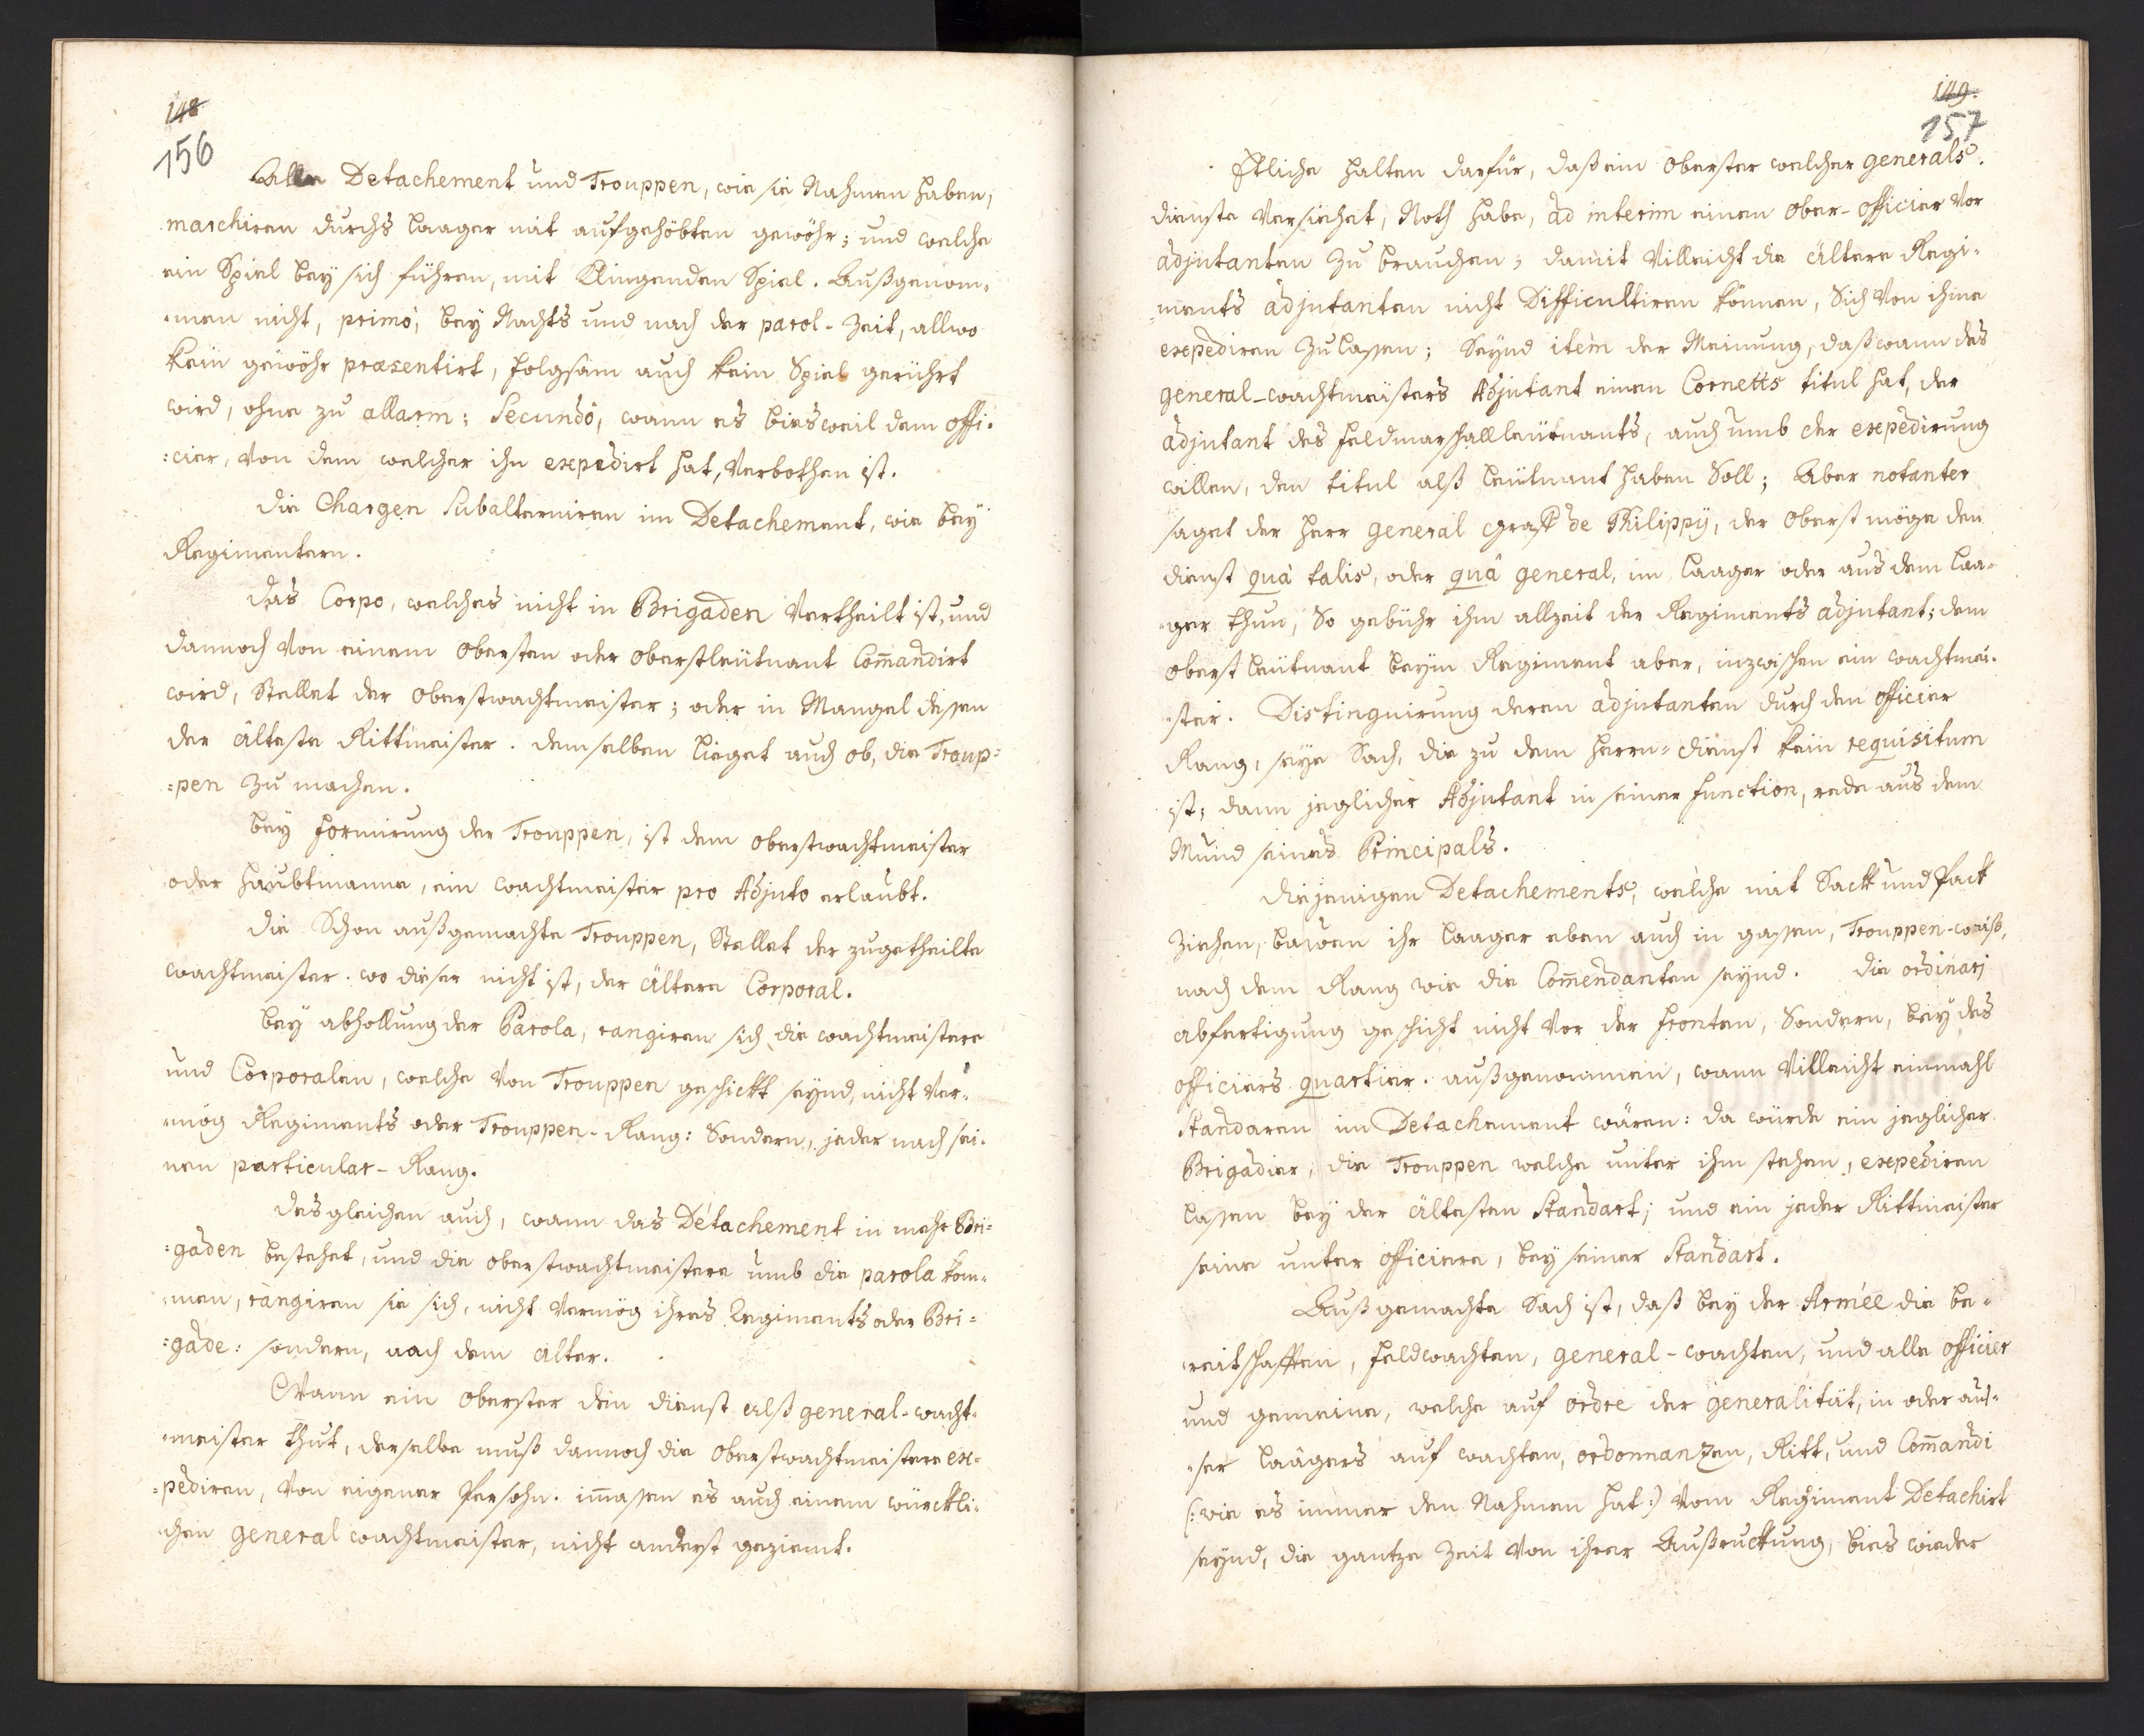 148
156
Alle Detachement und Trouppen, wie sie Nahmen haben,
marchiren durchs Laager mit aufgehöbten gewöhr; und welche
ein Spiel bey sich führen, mit Klingenden Spiel. Außgenom-
-men nicht, primò, bey Nachts und nach der parol-Zeit, allwo
kein gewöhr præsentirt, folgsam auch kein Spiel gerührt
wird, ohne zu allarm: Secundò, wann es biesweil dem offi-
:cier, Von dem welcher ihn expedirt hat, Verbothen ist.
Die Chargen Subalterniren im Detachement, wie bey
Regimentern.
Das Corpo, welches nicht in Brigaden Vertheilt ist, und
dannoch Von einem Obersten oder Oberstleütnant Com̄andirt
wird, Stellet der Oberstwachtmeister; oder in Mangel dessen
der älteste Rittmeister. demselben lieget auch ob, die Troup-
:pen zu machen.
Bey formirung der Trouppen, ist dem Oberstwachtmeister
oder Haubtmanne, ein wachtmeister pro Adjuto erlaubt.
Die Schon außgemachte Trouppen, Stellet der zugetheilte
wachtmeister. wo dieser nicht ist, der ältere Corporal.
Bey abhollung der Parola, rangiren sich die wachtmeistere
und Corporalen, welche Von Trouppen geschickt seynd, nicht Ver-
-mög Regiments oder Trouppen-Rang: Sondern, jeder nach sei-
nen particular-Rang.
Desgleichen auch, wann das Détachement in mehr Bri-
:gaden bestehet, und die Oberstwachtmeistere umb die parola kom-
-men, rangiren sie sich, nicht Vermög ihres Regiments oder Bri-
:gade: sondern, nach dem alter.
Wann ein Oberster den dienst alß general-wacht-
-meister thut, derselbe muß dannoch die Oberstwachtmeistere ex-
-pediren, Von eigener Persohn. im̄assen es auch einem würckli-
chen general wachtmeister, nicht anderst geziemt.
149.
157
Etliche halten darfür, daß ein Oberster welcher generals-
dienste Versiehet, Noth habe, ad interim einen Ober-Officier Vor
adjutanten zu brauchen; damit Villeicht die ältere Regi-
-ments adjutanten nicht Difficultiren können, Sich Von ihme
expediren zu lassen; Seynd item der Meinung, daß wann des
general-wachtmeisters Adjutant einen Cornetts titul hat, der
adjutant des feldmarschallleütnants, auch umb der expedirung
willen, den titul alß leütnant haben Soll; Aber notanter
saget der Herr general graff de Philippÿ, der Oberst möge den
dienst quà talis, oder quâ general, im Laager oder aus dem Laa-
-ger thun, So gebühr ihm allzeit der Regiments adjutant; dem
Oberst leütnant beym Regiment aber, inzwischen ein wachtmei-
-ster. Distinguirung deren adjutanten durch den officier
Rang, seye Sach, die zu dem Herrn-dienst kein requisitum
ist; dann jeglicher Adjutant in seiner function, rede aus dem
Mund seines Principals.
Diejenigen Detachements, welche mit Sack und Pack
ziehen, bawen ihr Laager eben auch in gassen, Trouppen-weiß,
nach dem Rang wie die Com̄endanten seynd. Die ordinari
abfertigung geschicht nicht Vor der fronten, Sondern, bey des
officiers quartier. außgenommen, wann Villeicht einmahl
Standaren im Detachement wären: da würde ein jeglicher
Brigadier, die Trouppen welche unter ihm stehen, expediren
lassen bey der ältesten Standart; und ein jeder Rittmeister
seine unter officiere, bey seiner Standart.
Außgemachte Sach ist, daß bey der Armée die be-
-reitschafften, feldwachten, general-wachten, und alle officier
und gemeine, welche auf ordre der generalität, in oder aus-
-ser Laagers auf wachten, ordonnanzen, Ritt, und Com̄andi
(: wie es immer den Nahmen hat :) Vom Regiment Detachirt
seynd, die gantze Zeit Von ihrer Außruckung, bies wieder